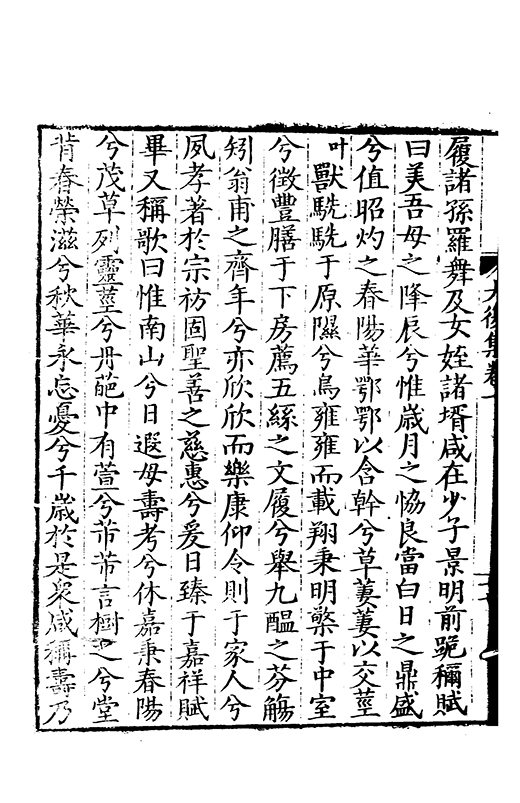 履諸孫羅舞及女姪諸壻咸在少子景明前跪稱賦
曰美吾母之降辰兮惟歲月之恊良當白日之鼎盛
兮值昭灼之春陽華鄂鄂以含幹兮草萋萋以交莖
叶獸駪駪于原隰兮鳥雍雍而載翔秉明檠于中室
兮徵豐膳于下房薦五絲之文履兮舉九醞之芬觴
矧翁甫之齊年兮亦欣欣而樂康仰令則于家人兮
夙孝著於宗祊固聖善之慈惠兮爰日臻于嘉祥賦
畢又稱歌曰惟南山兮日遐母壽考兮休嘉秉春陽
兮茂草列靈莖兮丹葩中有萱兮芾芾言樹之兮堂
背春榮滋兮秋華永忘憂兮千歲於是衆咸稱壽乃
大復集卷